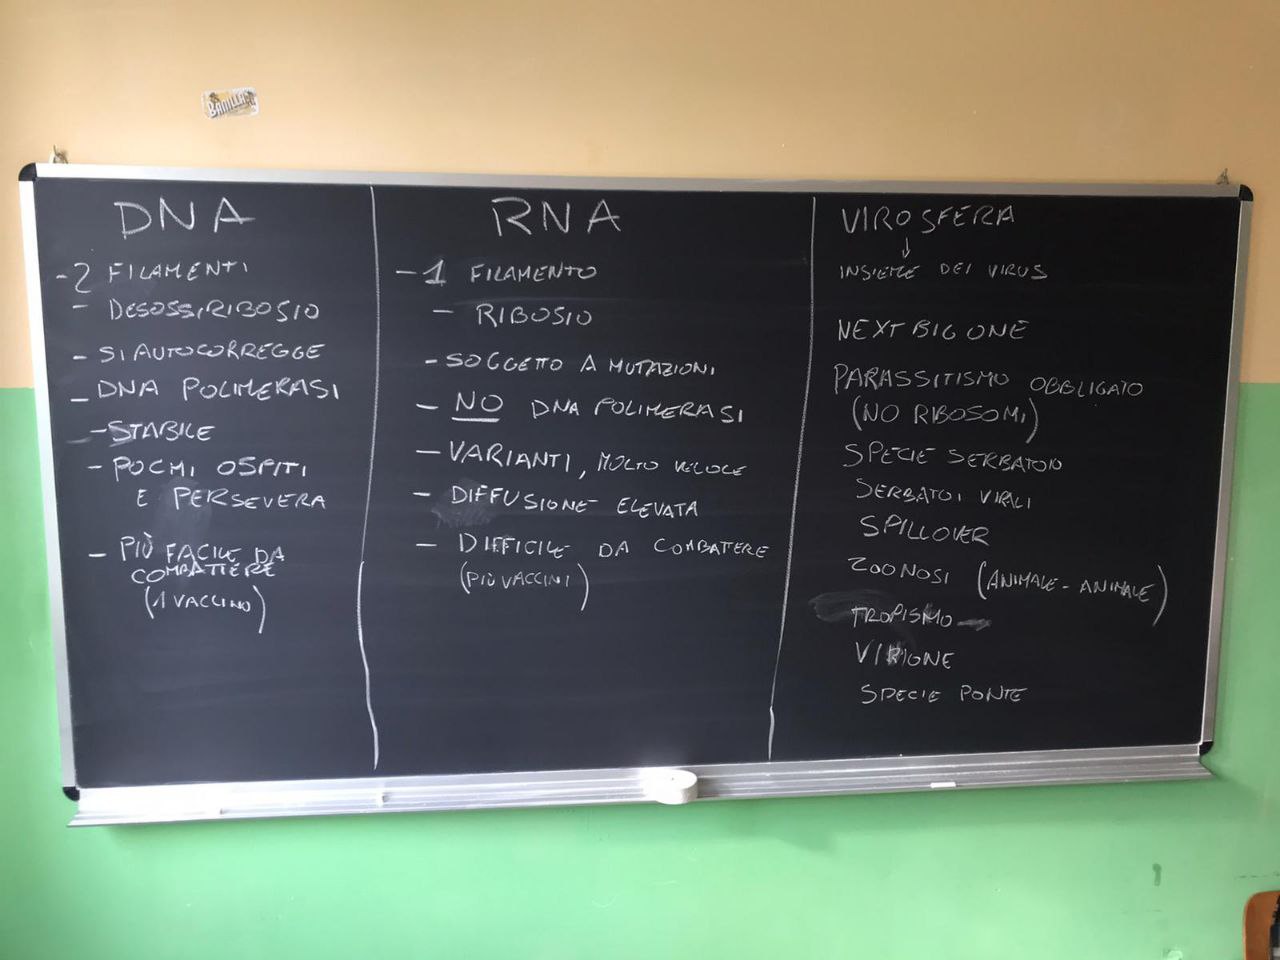 BADILLAC
DNA
- 2 FILAMENTI
- DESOSSIRIBOSIO
- SI AUTOCORREGGE
- DNA POLIMERASI
- STABILE
- POCHI OSPITI
E PERSEVERA
- PIÙ FACILE DA
COMBATTERE
(1 VACCINO)
RNA
- 1 FILAMENTO
- RIBOSIO
- SOGGETTO A MUTAZIONI
- NO DNA POLIMERASI
- VARIANTI, MOLTO VELOCE
- DIFFUSIONE ELEVATA
- DIFFICILE DA COMBATTERE
(PIÙ VACCINI)
VIROSFERA
↓
INSIEME DEI VIRUS
NEXT BIG ONE
PARASSITISMO OBBLIGATO
(NO RIBOSOMI)
SPECIE SERBATOIO
SERBATOI VIRALI
SPILLOVER
ZOONOSI (ANIMALE - ANIMALE)
TROPISMO
VIRIONE
SPECIE PONTE